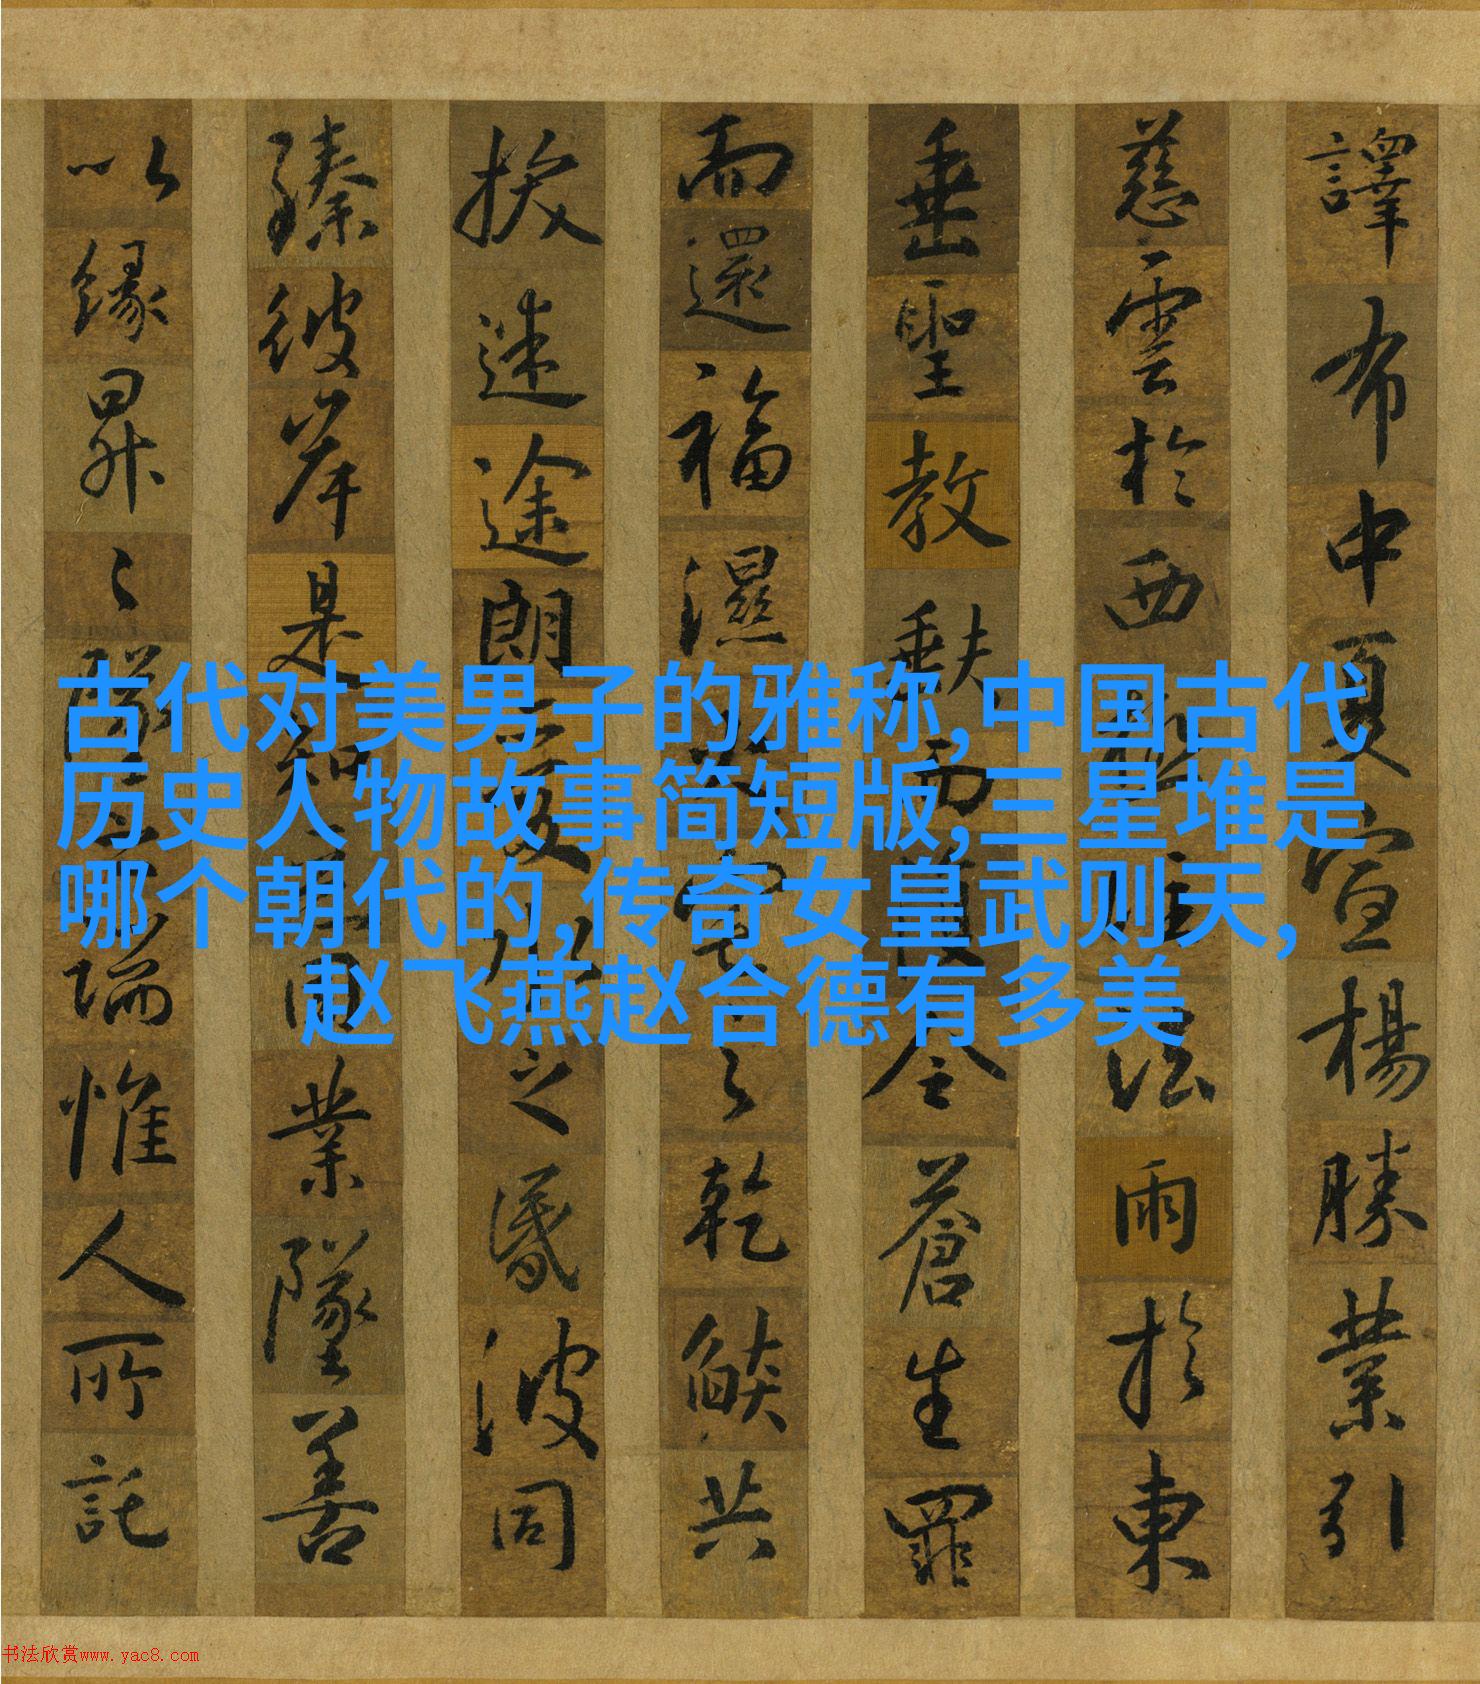 譯布中夏宣楊勝業引
慈雲於西極注法雨於東
垂聖教缺而復全蒼生罪
而還福濕火宅之乾燄共
拔迷途朗愛水之昏波同
臻彼岸是知惡因業墜善
以緣昇〻墜之端惟人所託
古代对美男子的雅称,中国古代
历史人物故事简短版,三星堆是
哪个朝代的,传奇女皇武则天,
赵飞燕赵合德有多美
书法欣赏www.yac8.com